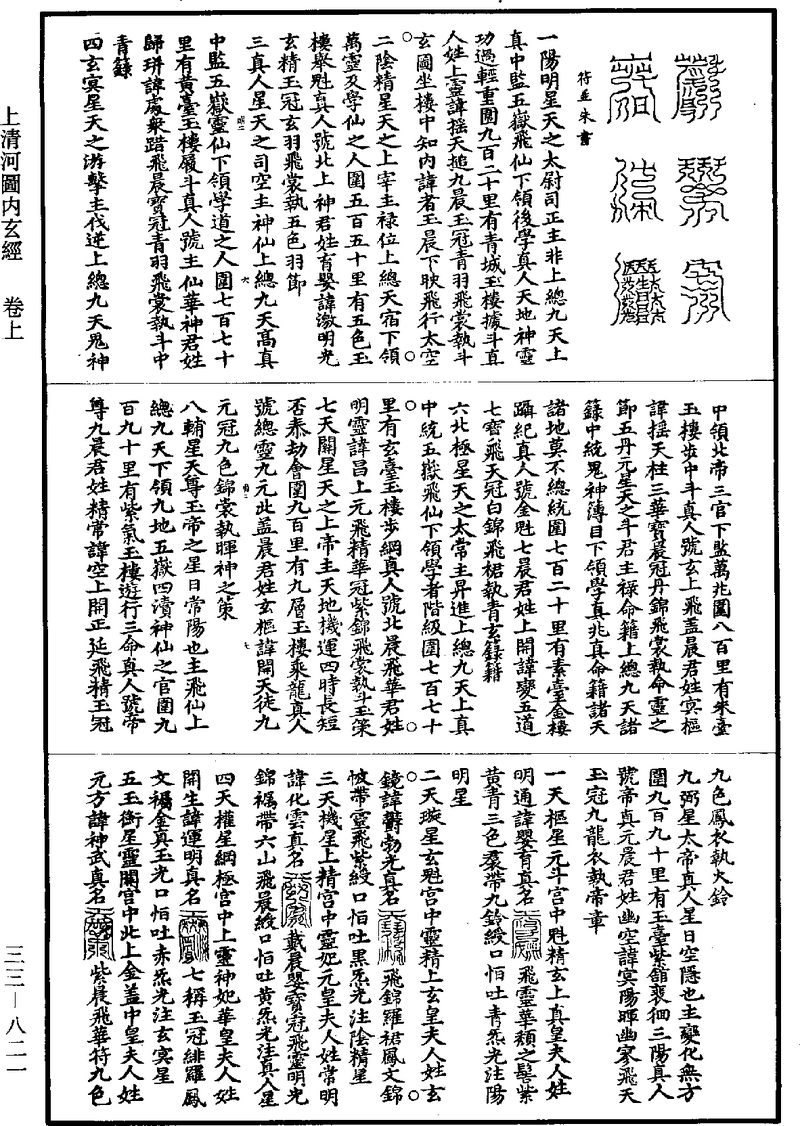 上清河圖内玄經　卷上
三三—八二一
符並朱書
一陽明星天之太尉司正主非上總九天上
真中監五嶽飛仙下領後學真人天地神靈
功過輕重圍九百二十里有青城玉樓據斗直
人姓上靈諱搖天槌九晨玉冠青羽飛裳執斗
玄圖坐樓中知内諱者玉晨下映飛行太空
○
二陰精星天之上宰主禄位上總天宿下領
萬靈及學仙之人圍五百五十里有五色玉
樓舉魁真人號北上神君姓育嬰諱激明光
玄精玉冠玄羽飛裳執五色羽節
三真人星天之司空主神仙上總九天高真
中監五嶽靈仙下領學道之人圍七百七十
里有黄臺玉樓履斗真人號主仙華神君姓
歸珙諱處衆踏飛晨寶冠青羽飛裳執斗中
青籙
四玄冥星天之游擊主伐逆上總九天鬼神
中領北帝三官下監萬兆圍八百里有朱臺
玉樓步中斗真人號玄上飛蓋晨君姓冥樞
諱搖天柱三華寶晨冠丹錦飛裳執命靈之
節五丹元星天之斗君主禄命籍上總九天諸
籙中統鬼神簿目下領學真兆真命籍諸天
諸地莫不總統圍七百二十里有素臺金樓
躡紀真人號金魁七晨君姓上開諱變五道
七寶飛天冠白錦飛裙執青玄籙籍
六北極星天之太常主昇進上總九天上真
中統五嶽飛仙下領學者階級圍七百七十
里有玄臺玉樓步綱真人號北晨飛華君姓
明靈諱昌上元飛精華冠紫錦飛裳執斗玉策
七天關星天之上帝主天地機運四時長短
否泰劫會圍九百里有九層玉樓乘龍真人
號總靈九元北蓋晨君姓玄樞諱開天徒九
元冠九色錦裳執暉神之策
八輔星天尊玉帝之星日常陽也主飛仙上
總九天下領九地五嶽四瀆神仙之官圍九
百九十里有紫氣玉樓遊行三命真人號帝
尊九晨君姓精常諱空上開正延飛精玉冠
九色鳳衣執火鈴
九弼星太帝真人星日空隱也主變化無方
圍九百九十里有玉臺紫舘裴徊三陽真人
號帝真元晨君姓幽空諱冥陽暉幽寥飛天
玉冠九龍衣執帝章
一天樞星元斗宫中魁精玄上真皇夫人姓
明通諱嬰育真名飛靈華頹之髻紫
黄青三色裙帶九鈴綬口恒吐青炁光注陽
明星
二天璇星玄魁宫中靈精上玄皇夫人姓玄
鏡諱欝勃光真名飛錦羅裙鳳文錦
帔帶靈飛紫綬口恒吐黑炁光注陰精星
三天機星上精宫中靈妃元皇夫人姓常明
諱化雲真名戴晨嬰寶冠飛靈明光
錦褐帶六山飛晨綬口恒吐黄炁光注真人星
四天權星綱極宫中上靈神妃華皇夫人姓
開生諱運明真名七稱玉冠緋羅鳳
文襦金真玉光口恒吐赤炁光注玄冥星
五玉衡星靈闌宫中北上金蓋中皇夫人姓
元方諱神武真名紫晨飛華符九色